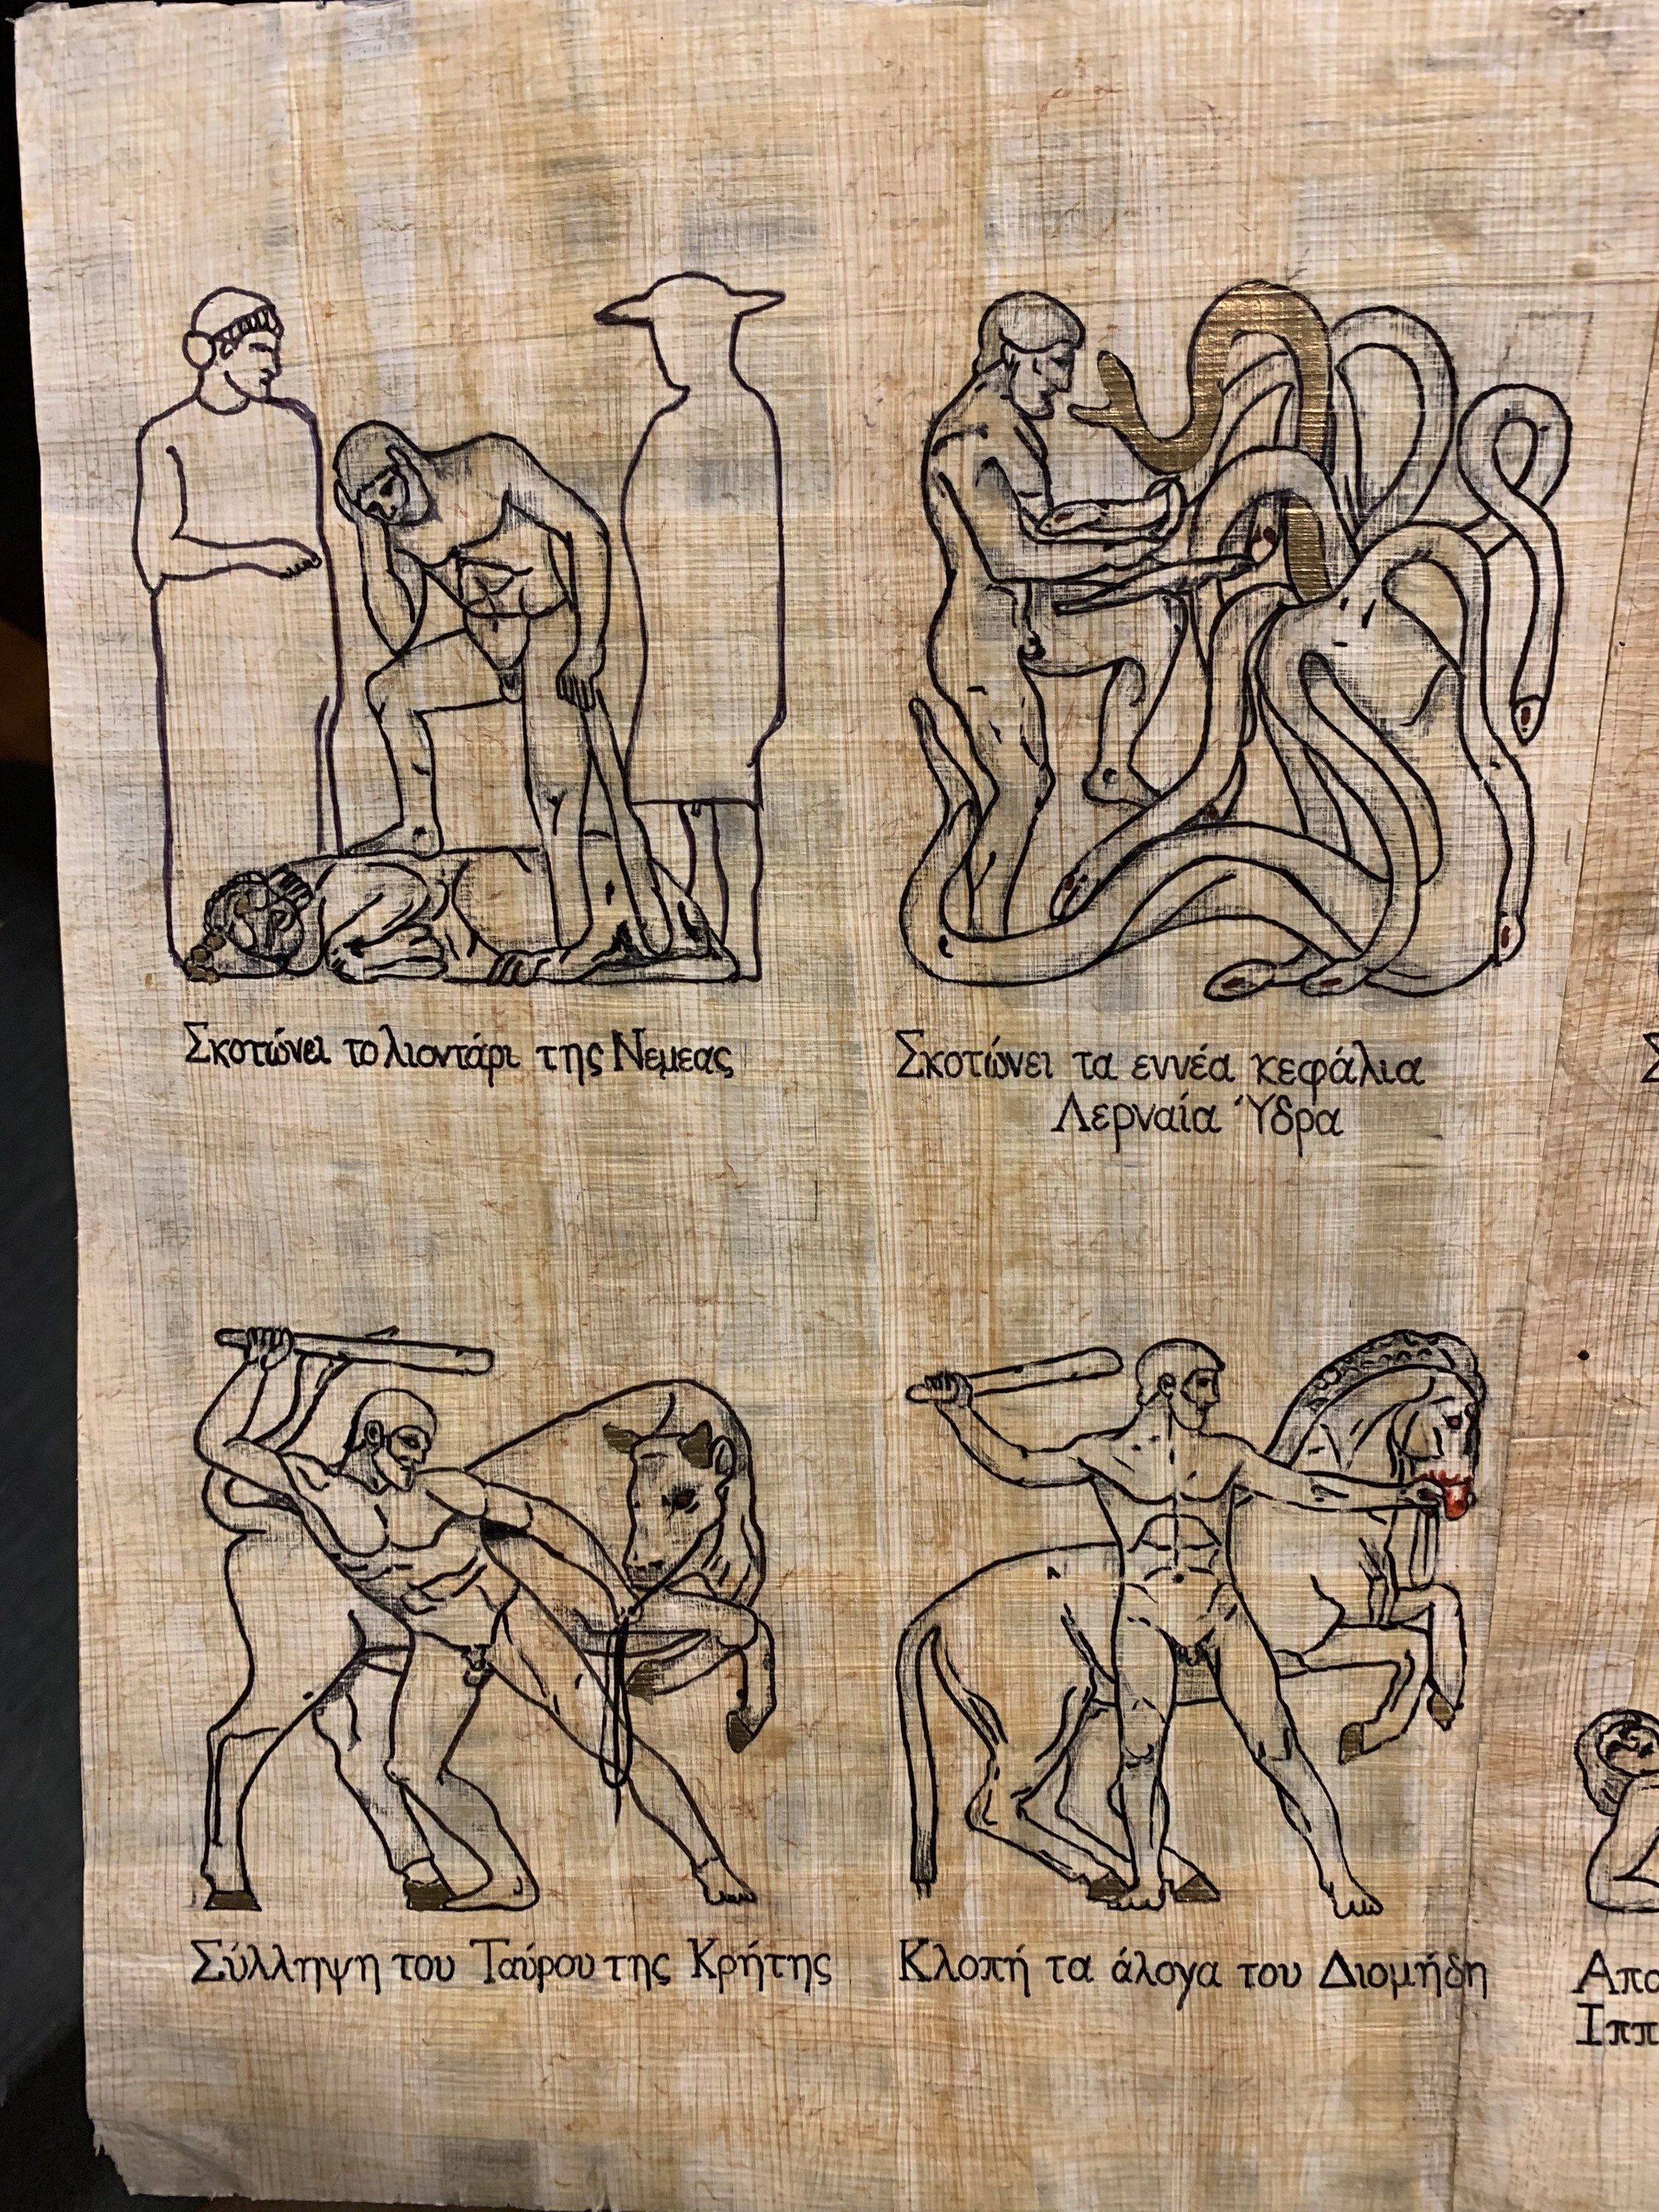 Σκοτώνει το λιοντάρι της Νεμεας
Σκοτώνει τα εννέα κεφάλια
Λερναία Ύδρα
Σ
Σύλληψη του Ταύρου της Κρήτης
Κλοπή τα άλογα του Διομήδη
Απο
Ιππ